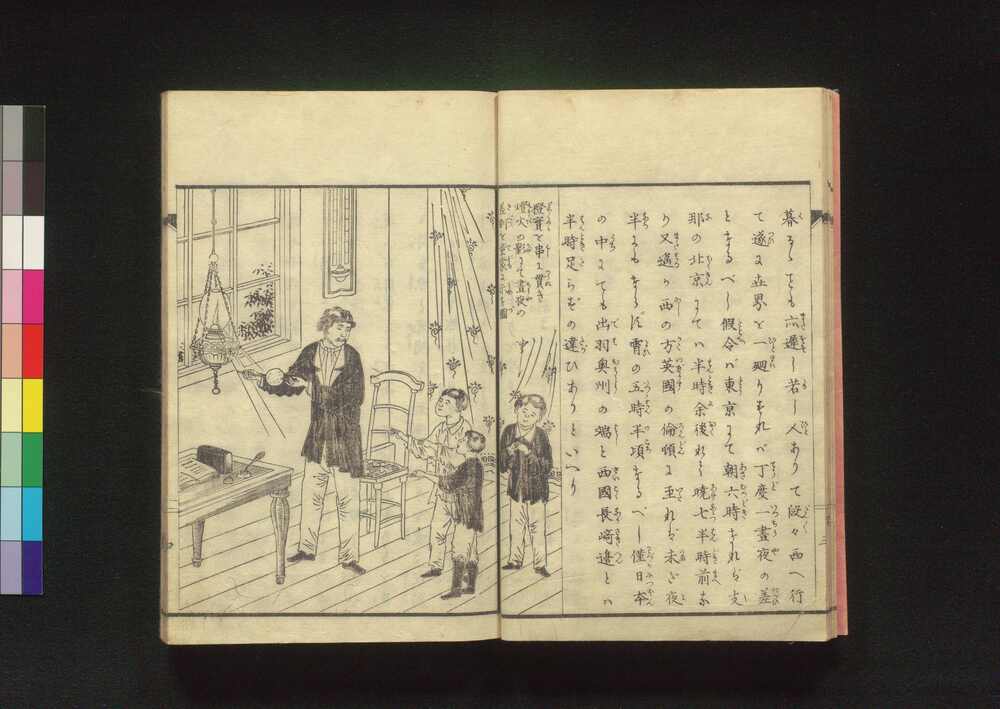 暮るゝことも亦遲し若し人ありて段々西へ行
て遂に世界を一廻りすれバ丁度一晝夜の差
となるべし假令バ東京にて朝六時なれバ支
那の北京にてハ半時余後れ曉七半時前な
り又遙か西の方英國の倫頓に至れバ未だ夜
半にもならず宵の五時半項なるべし僅日本
の中にても出羽奥州の端と西國長﨑邊とハ
半時足らずの違ひありといへり
橙實を串に貫き
燈火の影にて晝夜の